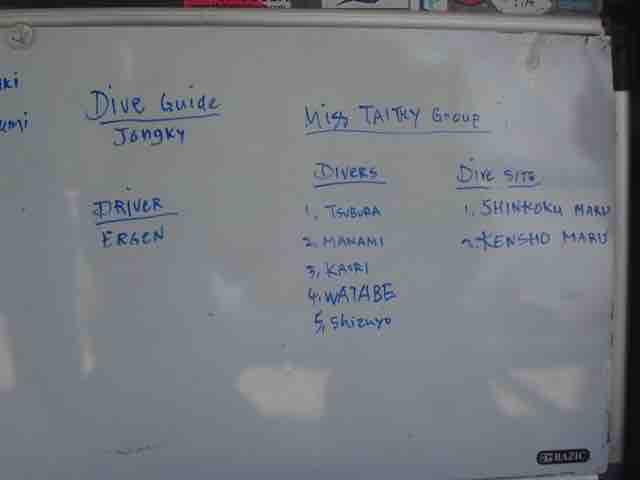 Dive Guide
Jongky
DRIVER
ERGEN
Miss TAITHY Group
DIVERS
1, TSUBURA
2. MANAMI
3, KAORI
4, WATABE
5, Shizuyo
Dive SITE
1. SHINKOKU MARU
2. KENSHO MARU
BAZIC